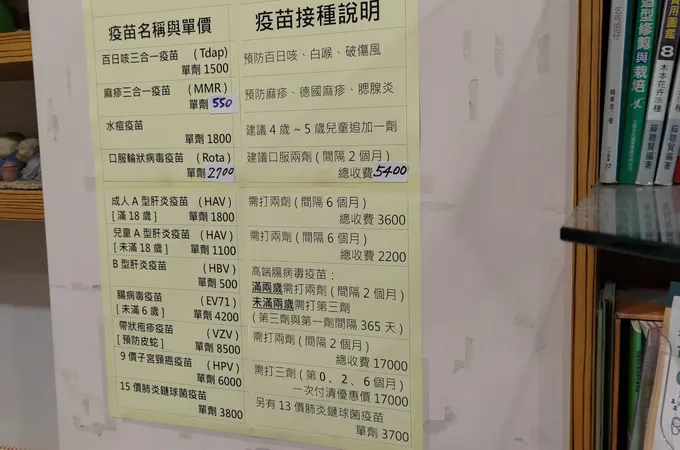 疫苗名稱與單價
百日咳三合一疫苗 (Tdap)
單劑 1500
麻疹三合一疫苗 (MMR)
單劑 550
水痘疫苗
單劑 1800
口服輪狀病毒疫苗 (Rota)
單劑 2700
成人 A 型肝炎疫苗 (HAV)
[ 滿 18 歲 ] 單劑 1800
兒童 A 型肝炎疫苗 (HAV)
[ 未滿 18 歲 ] 單劑 1100
B 型肝炎疫苗 (HBV)
單劑 500
腸病毒疫苗 (EV71)
[ 未滿 6 歲 ] 單劑 4200
帶狀疱疹疫苗 (VZV)
[ 預防皮蛇 ] 單劑 8500
9 價子宮頸癌疫苗 (HPV)
單劑 6000
15 價肺炎鏈球菌疫苗
單劑 3800
疫苗接種說明
預防百日咳、白喉、破傷風
預防麻疹、德國麻疹、腮腺炎
建議 4 歲 ~ 5 歲兒童追加一劑
建議口服兩劑 ( 間隔 2 個月 )
總收費 5400
需打兩劑 ( 間隔 6 個月 )
總收費 3600
需打兩劑 ( 間隔 6 個月 )
總收費 2200
高端腸病毒疫苗 :
滿兩歲需打兩劑 ( 間隔 2 個月 )
未滿兩歲需打第三劑
( 第三劑與第一劑間隔 365 天 )
需打兩劑 ( 間隔 2 個月 )
總收費 17000
需打三劑 ( 第 0、2、6 個月 )
一次付清優惠價 17000
另有 13 價肺炎鏈球菌疫苗
單劑 3700
造型修剪與栽培
實用圖鑑
8
木本花卉
薛聰賢編著